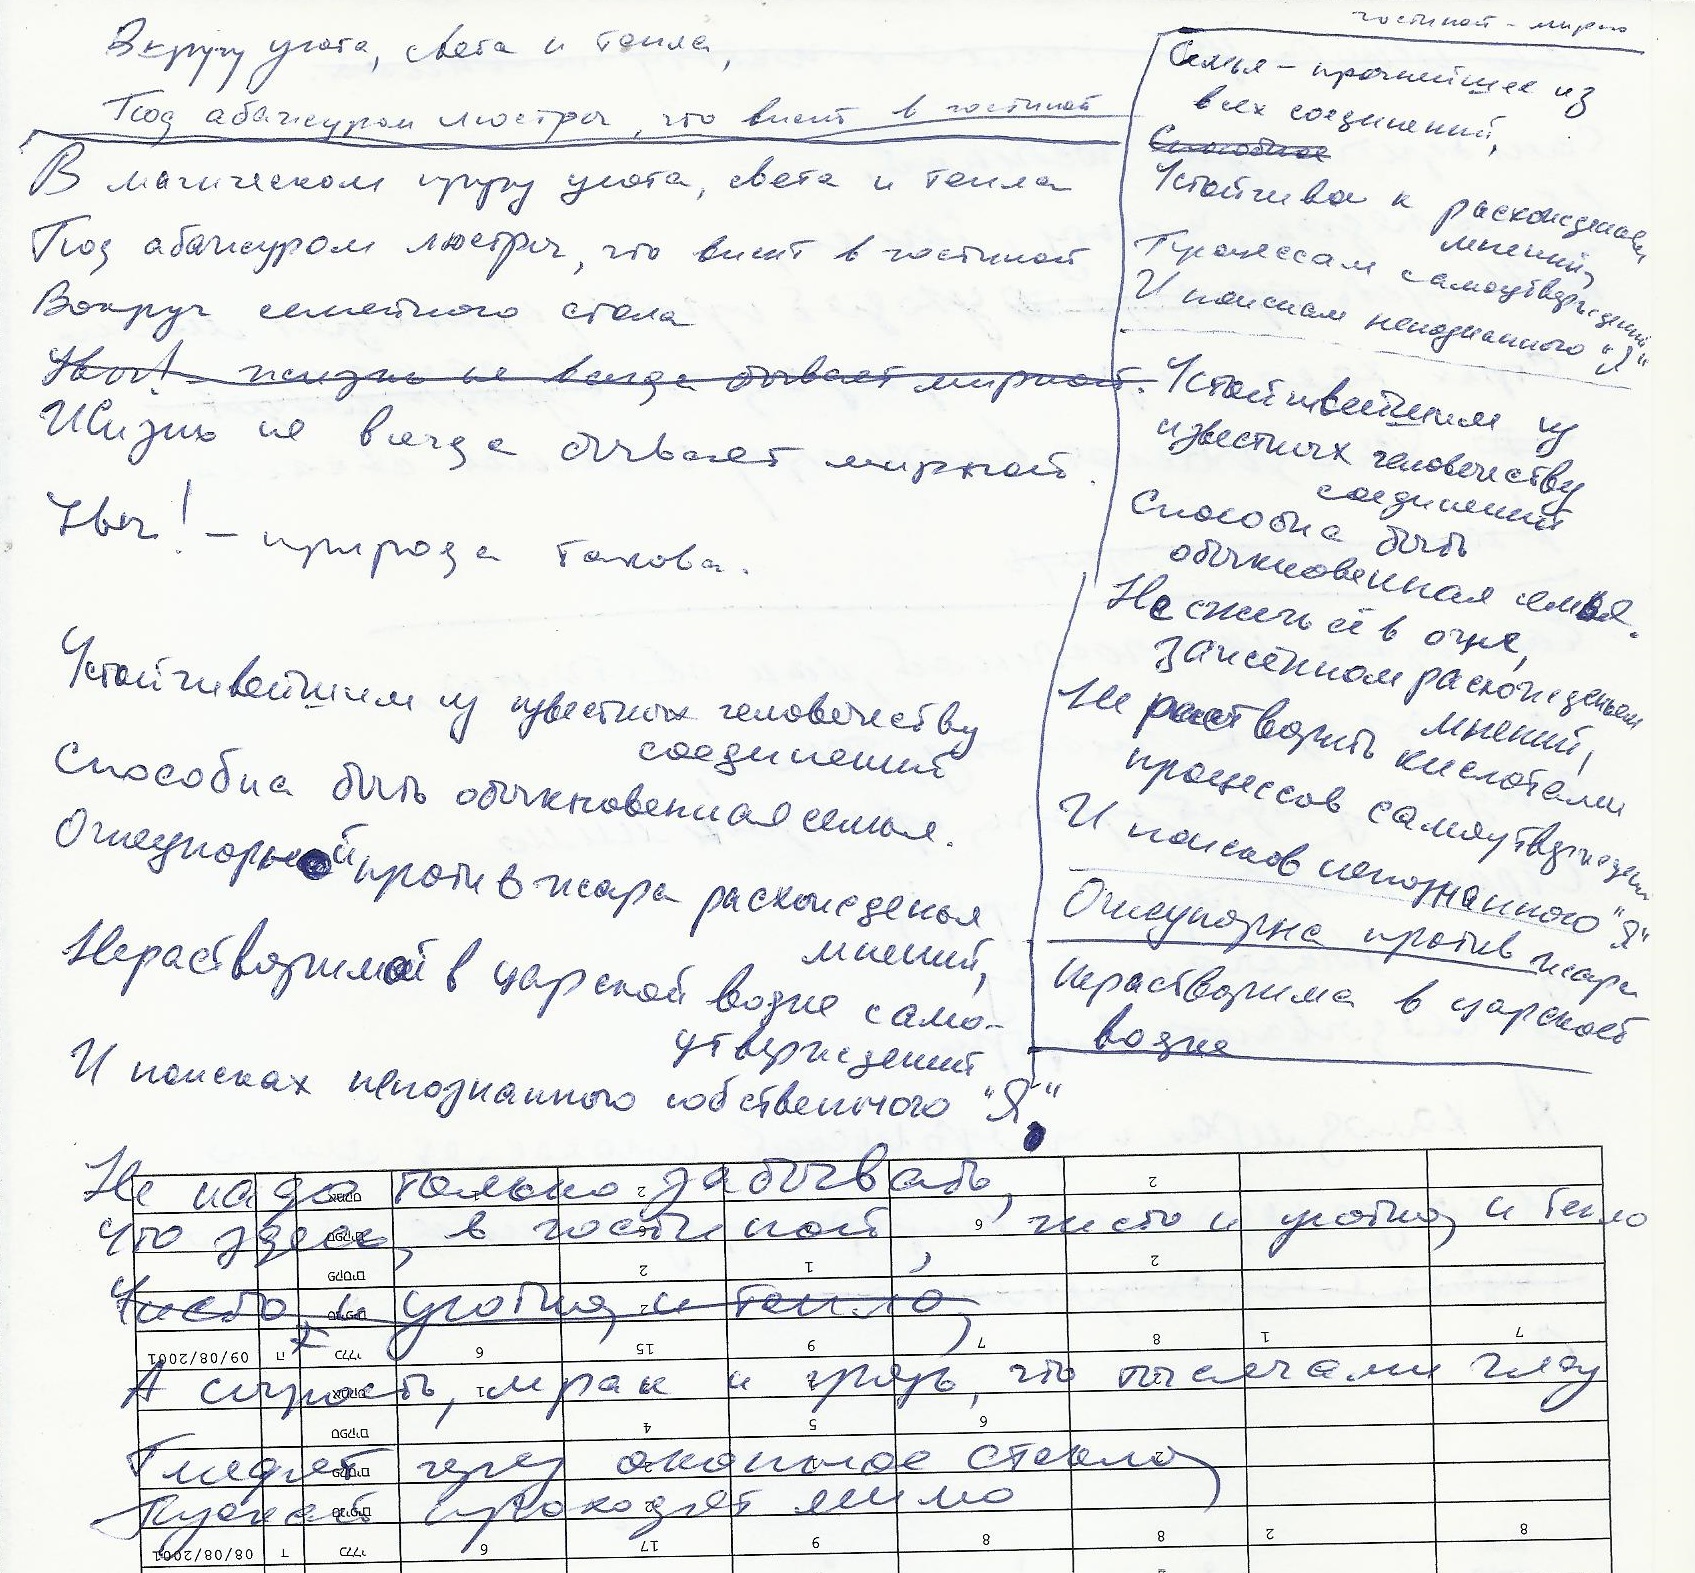 В кругу уюта, света и тепла,
Под абажуром люстры, что висит в гостиной
В магическом кругу уюта, света и тепла
Под абажуром люстры, что висит в гостиной
Вокруг семейного стола
Увы! - жизнь не всегда бывает мирной.
Жизнь не всегда бывает мирной.
Увы! - природа такова.
Устойчивейшим из известных человечеству
соединений
Способна быть обыкновенная семья.
Огнеупорной против жара расхожденья
мнений,
Нерастворимой в царской водке само-
утверждений
И поисках непознанного собственного "Я",
Не надо только забывать,
Что здесь, в гостиной, чисто и уютно, и тепло
Чисто и уютно, и тепло,
А сырость, мрак и грязь, что тысячами глаз
Глядят через оконное стекло,
Пускай проходят мимо
гостиной - мирно
Семья - прочнейшее из
всех соединений,
Способное
Устойчива к расхожденьям
мнений,
Процессам самоутверждений
И поискам непознанного "Я"
Устойчивейшим из
известных человечеству
соединений
Способна быть
обыкновенная семья.
Не сжечь её в огне,
зажжённом расхожденьем
мнений,
Не растворить кислотами
процессов самоутверждений
И поисков непознанного "Я"
Огнеупорна против жара
Нерастворима в царской
водке
2 2
6
2 1 2
09/08/2001 ה 6 15 9 7 8 1 7
4 5 6
08/08/2001 ד 6 17 9 8 8 2 8